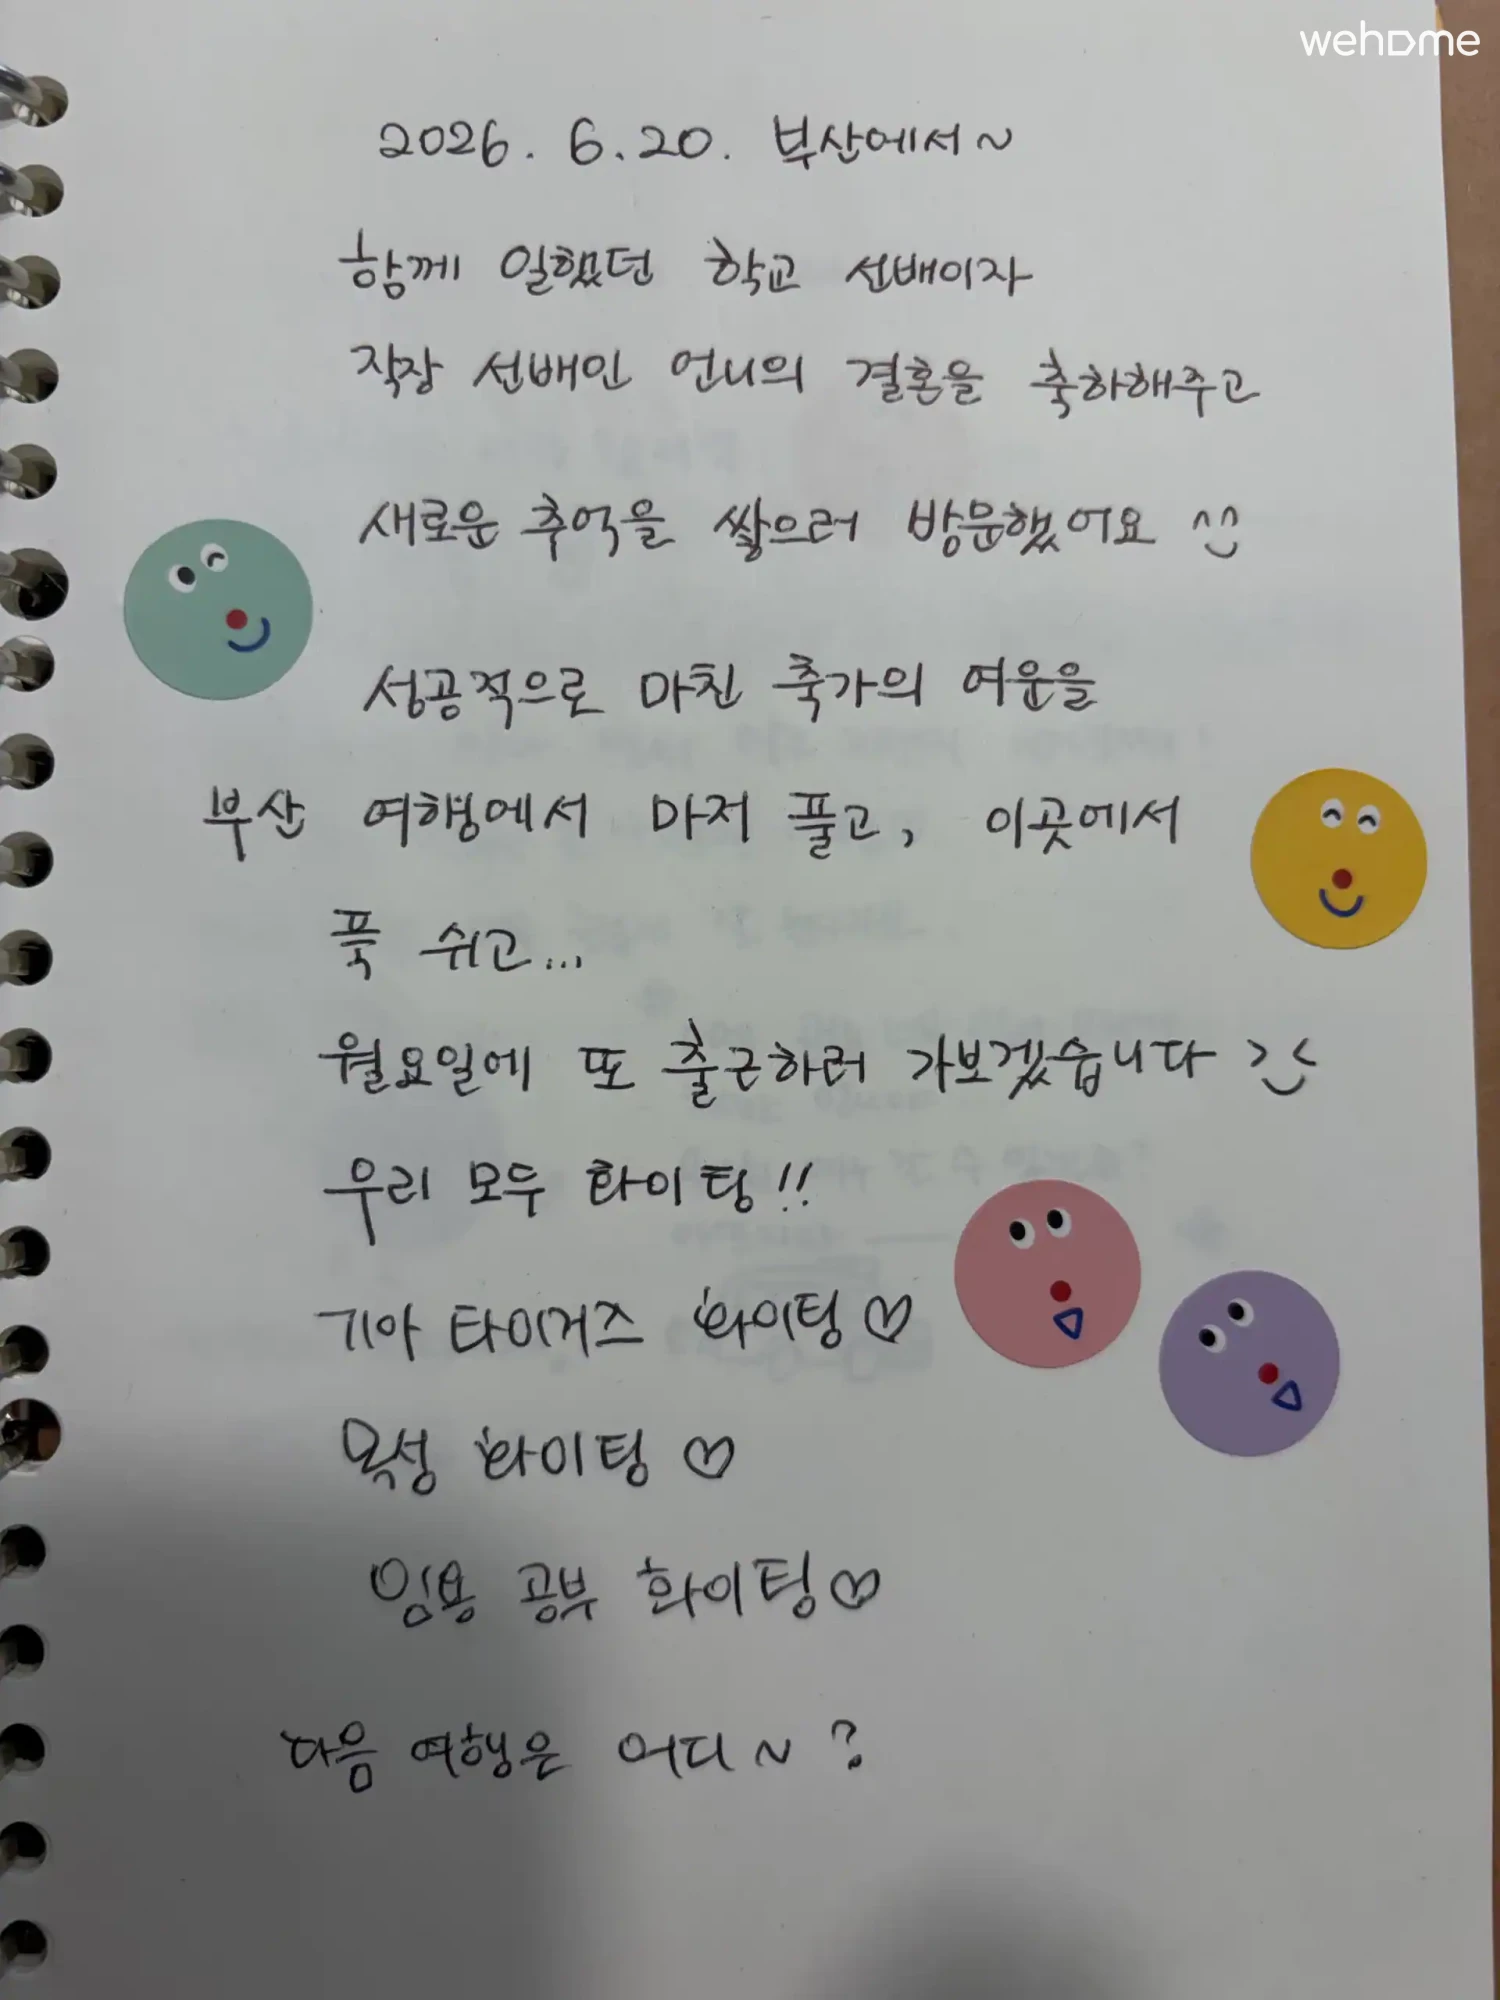 wehome
2026. 6. 20. 부산에서~
함께 일했던 학교 선배이자
직장 선배인 언니의 결혼을 축하해주고
새로운 추억을 쌓으러 방문했어요 ^^
성공적으로 마친 축가의 여운을
부산 여행에서 마저 풀고, 이곳에서
푹 쉬고...
월요일에 또 출근하러 가보겠습니다 > <
우리 모두 화이팅!!
기아 타이거즈 화이팅♡
화이팅♡
임용 공부 화이팅♡
다음 여행은 어디~?